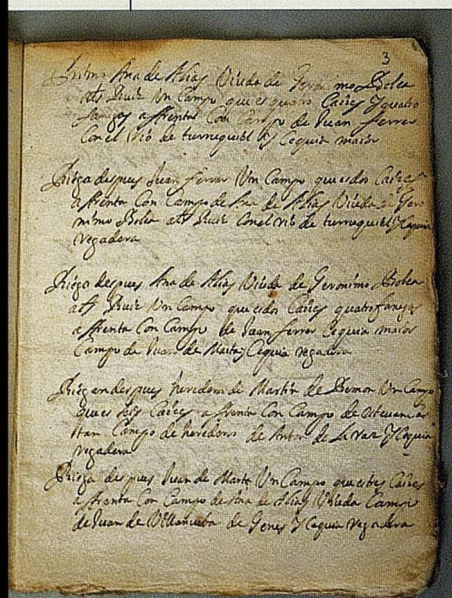 3
Ana de Alias Viuda de Geronimo Bolea
Ruiz Un Campo que es quatro Caiçes y quatro
fanegas afrenta Con Campo de Juan ferrer
Con el Rio de turrequiel y Cequia maior
Riega despues Juan ferrer Un Campo que es dos Caiçes
afrenta Con Campo de Ana de Alias Viuda de Gero
nimo Bolea Ruiz Con el rio de turrequiel y Cequia
Regadera
Riega despues Ana de Alias Viuda de Geronimo Bolea
Ruiz Un Campo que es dos Caiçes quatro fanegas
afrenta Con Campo de Juan ferrer Cequia maior
Campo de Juan de Marta y Cequia regadera
Riegan despues herederos de Martin de Un Campo
que es seis Caiçes afrenta Con Campo de
Campo de herederos de Anton de y Cequia
regadera
Riega despues Juan de Marta Un Campo que es tres Caiçes
afrenta Con Campo de Ana de Alias Viuda Campo
de Juan de Villanueba de Genes y Cequia regadera